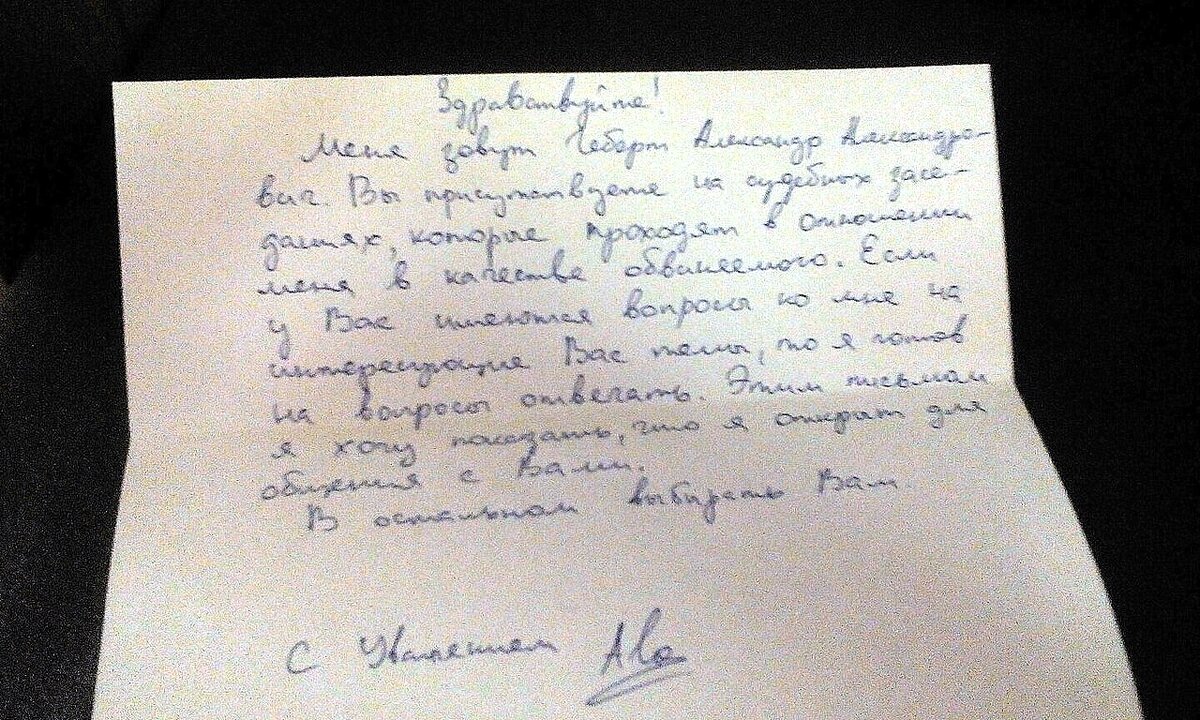 Здравствуйте!
Меня зовут Геборт Александр Александро-
вич. Вы присутствуете на судебных засе-
даниях, которые проходят в отношении
меня в качестве обвиняемого. Если
у Вас имеются вопросы ко мне на
интересующие Вас темы, то я готов
на вопросы отвечать. Этим письмом
я хочу показать, что я открыт для
общения с Вами.
В остальном выбирать Вам.
С Уважением